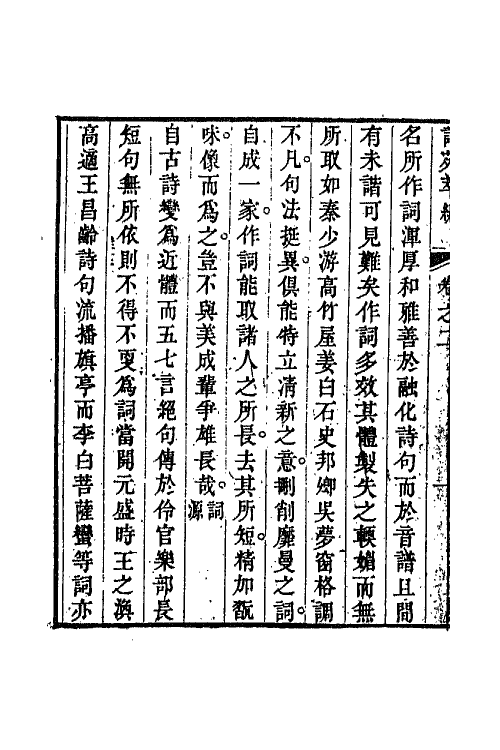 詞苑萃編 卷之二
名所作詞渾厚和雅善於融化詩句而於音譜且間
有未諧可見難矣作詞多效其體製失之輭媚而無
所取如秦少游高竹屋姜白石史邦卿吳夢窗格調
不凡。句法挺異。俱能特立清新之意。刪削靡曼之詞。
自成一家。作詞能取諸人之所長。去其所短。精加翫
味。像而為之。豈不與美成輩爭雄長哉。詞源
自古詩變為近體而五七言絕句傳於伶官樂部長
短句無所依則不得不更為詞當開元盛時王之渙
高適王昌齡詩句流播旗亭而李白菩薩蠻等詞亦